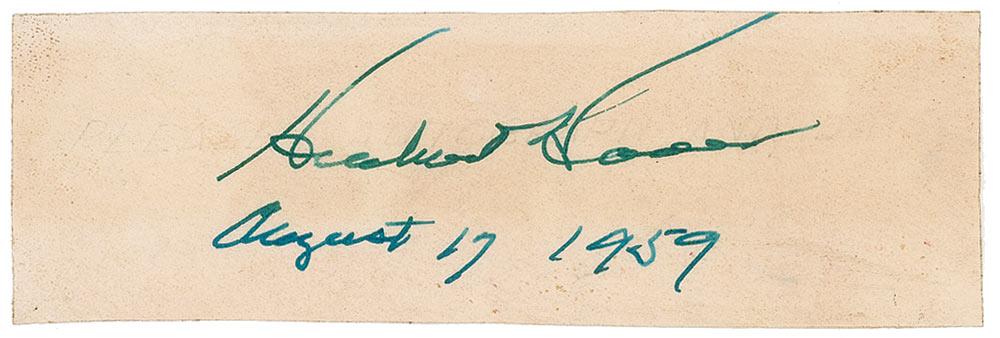 Herbert Hoover
August 17 1959